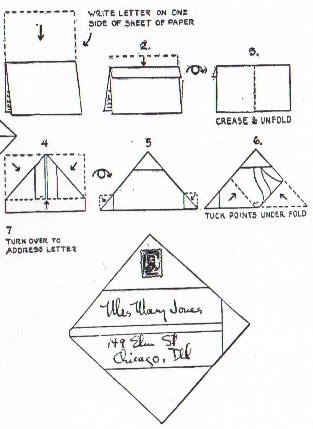 WRITE LETTER ON ONE
SIDE OF SHEET OF PAPER
2.
3.
CREASE & UNFOLD
4
5
6.
TUCK POINTS UNDER FOLD
7
TURN OVER TO
ADDRESS LETTER
Mary Jones
149 Elm St
Chicago, Ill